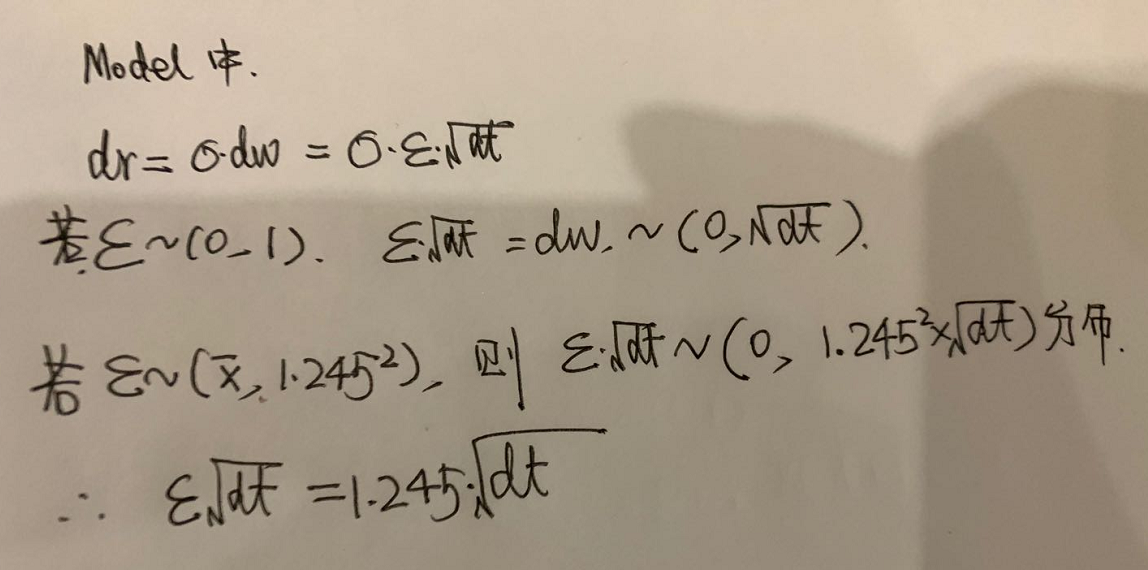 Model 中.
dr = σ·dw = σ·ε·√dt
若 ε~(0, 1). ε·√dt = dw. ~ (0, √dt).
若 ε~(x̄, 1.245²), 则 ε·√dt ~ (0, 1.245²×√dt) 分布.
∴ ε√dt = 1.245·√dt